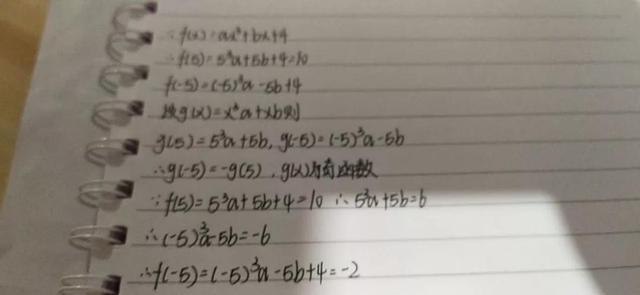 ∵f(x)=ax³+bx+4
∴f(5)=5³a+5b+4=10
f(-5)=(-5)³a-5b+4
设g(x)=x³a+xb则
g(5)=5³a+5b, g(-5)=(-5)³a-5b
∴g(-5)=-g(5), g(x)为奇函数
∵f(5)=5³a+5b+4=10 ∴5³a+5b=6
∴(-5)³a-5b=-6
∴f(-5)=(-5)³a-5b+4=-2